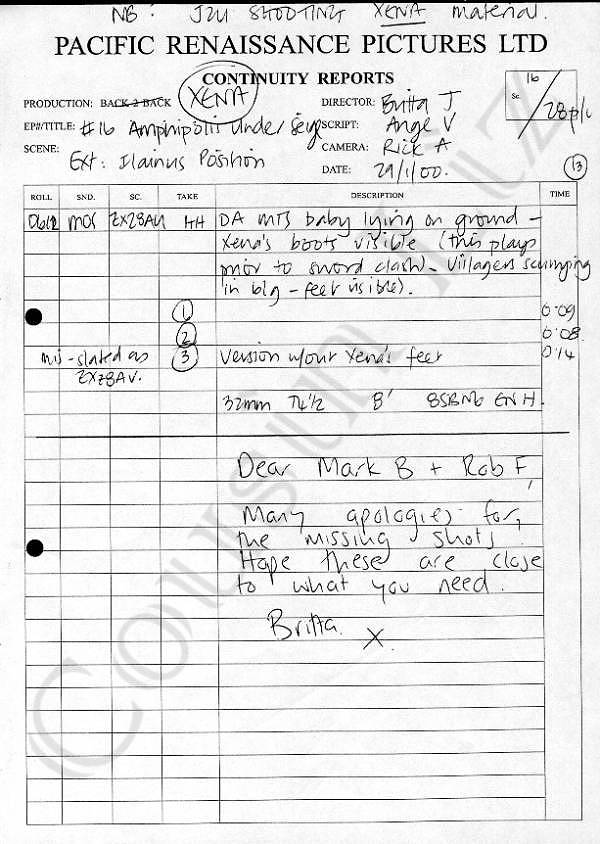 NB: J2U SHOOTING XENA material.
PACIFIC RENAISSANCE PICTURES LTD
CONTINUITY REPORTS
PRODUCTION: BACK 2 BACK XENA
DIRECTOR: Britta J
EP#/TITLE: #16 Amphipolis Under Seige
SCRIPT: Ange V
SCENE: Ext: Ilainus Position
CAMERA: Rick A
DATE: 29/1/00.
16
Sc.
28
13
ROLL SND. SC. TAKE DESCRIPTION TIME
MOS ZX28AU DA MTS baby lying on ground -
Xena's boots visible (this plays
prior to sword clash) - Villagers
in b/g - feet visible).
1 0.09
2 0.08
mis-slated as 3 Version w/out Xena's feet 0.14
ZX28AV.
32mm T4½ 8' 85BN6 EN H.
Dear Mark B + Rob F,
Many apologies for,
the missing shots
Hope these are close
to what you need.
Britta. X
Cousin Liz